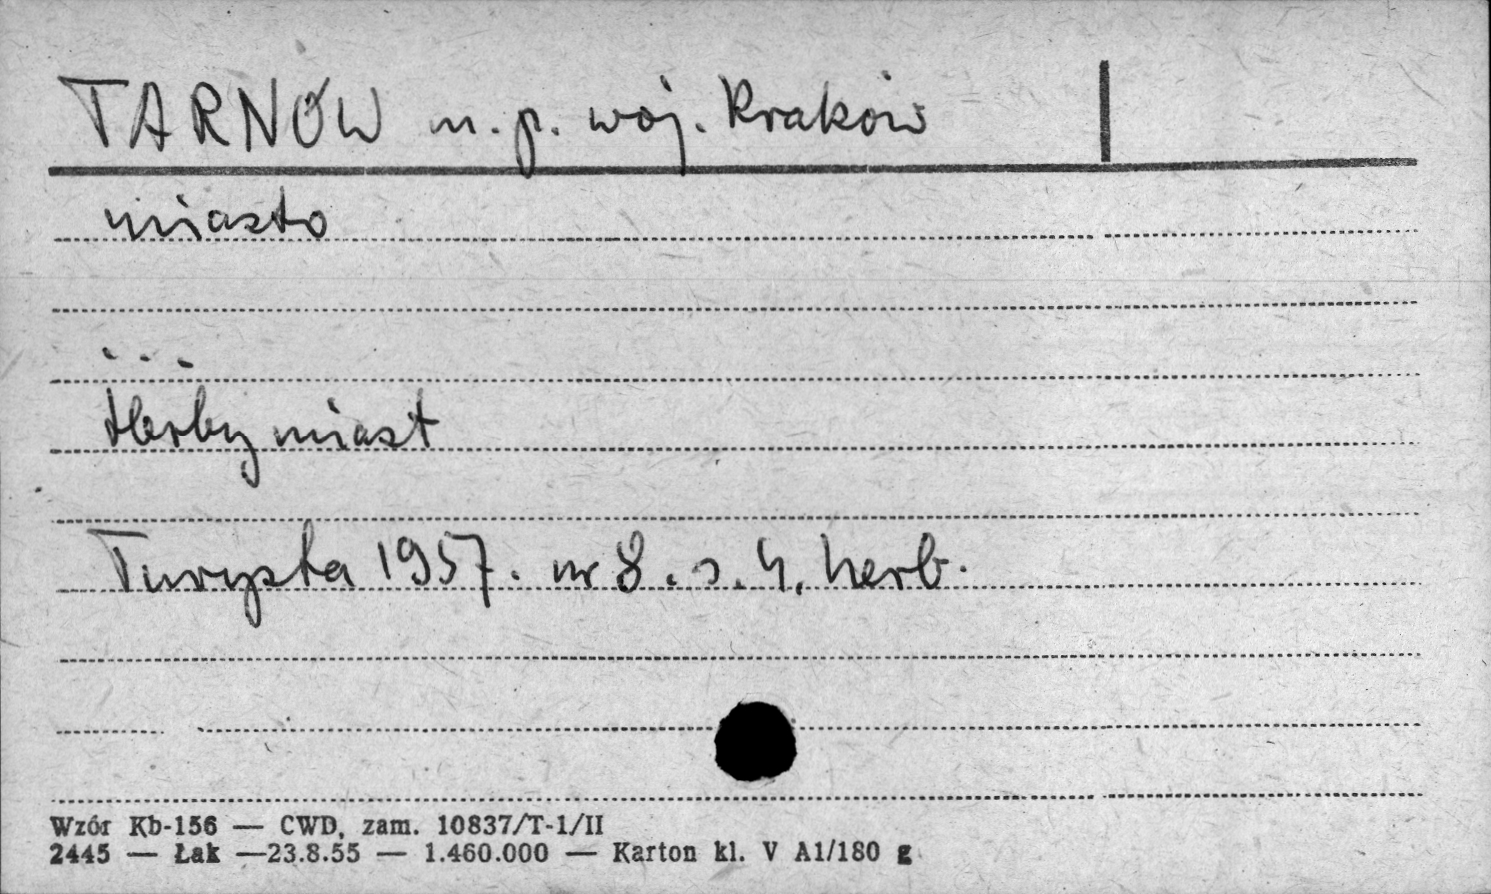 TARNÓW m. p. woj. Kraków
miasto
...
Herby miast
Turysta 1957. nr 8. s. 4. herb.
Wzór Kb-156 — CWD, zam. 10837/T-1/II
2445 — Łak —23.8.55 — 1.460.000 — Karton kl. V A1/180 g